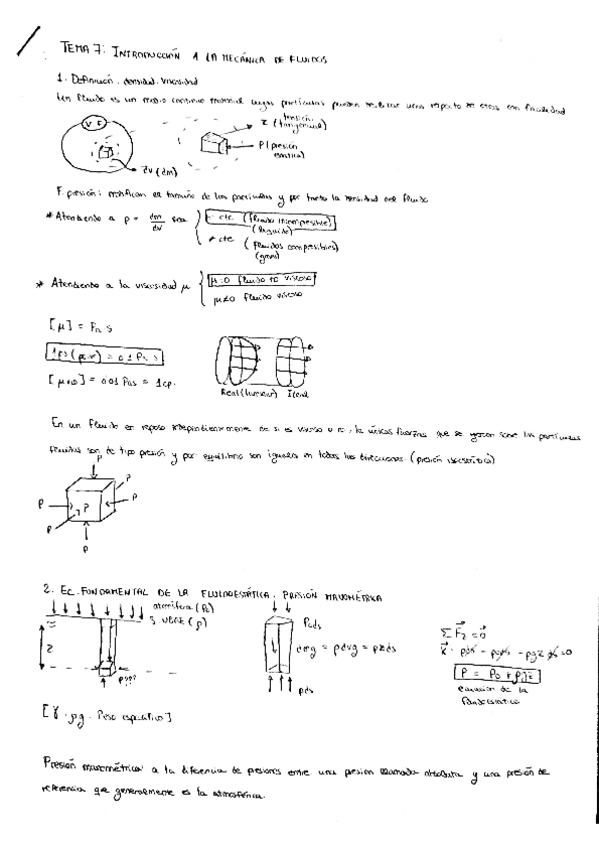 TEMA 7: INTRODUCCIÓN A LA MECÁNICA DE FLUIDOS
1. Definición. densidad. viscosidad
Un fluido es un medio continuo material cuyas partículas pueden realizar una respecto de otras con facilidad
V F
τ (tensión tangencial)
P (presión estática)
dv (dm)
F. presión: modifican el tamaño de las partículas y por tanto la densidad del fluido
* Atendiendo a ρ = dm/dv
= cte (fluido incompresible)
(líquido)
≠ cte (fluidos compresibles)
(gases)
* Atendiendo a la viscosidad μ
μ=0 fluido no viscoso
μ≠0 fluido viscoso
[μ] = Pa s
1 ps (poise) = 0'1 Pa s
= 1cp.
Real (laminar) Ideal
En un fluido en reposo independientemente de si es viscoso o no, las únicas fuerzas que se ejercen sobre las partículas
fluidas son de tipo presión y por equilibrio son iguales en todas las direcciones (presión isostática)
P
P
P
P
P
P
P
2. EC. FUNDAMENTAL DE LA FLUIDOESTÁTICA. PRESIÓN MANOMÉTRICA
atmósfera (P₀)
S. LIBRE (ρ)
z
P???
P₀ds
dmg = ρdvg = ρzds
pds
ΣF = 0
P = P₀ + ρgz
ecuación de la
fluidoestática
[γ = ρg. Peso específico]
Presión manométrica a la diferencia de presiones entre una presión llamada absoluta y una presión de
referencia que generalmente es la atmosférica.